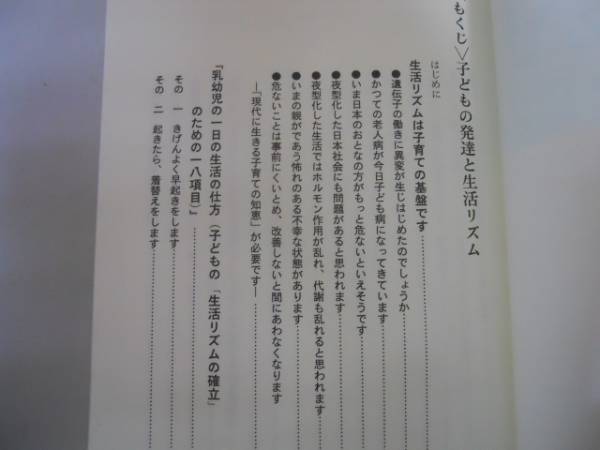 もくじ＞子どもの発達と生活リズム
はじめに
生活リズムは子育ての基盤です……………
●遺伝子の働きに異変が生じはじめたのでしょうか……………
●かつての老人病が今日子ども病になってきています……………
●いま日本のおとなの方がもっと危ないといえそうです……………
●夜型化した日本社会にも問題があると思われます……………
●夜型化した生活ではホルモン作用が乱れ、代謝も乱れると思われます……………
●いまの親がであう怖れのある不幸な状態があります……………
●危ないことは事前にくいとめ、改善しないと間にあわなくなります
―「現代に生きる子育ての知恵」が必要です―……………
『乳幼児の一日の生活の仕方（子どもの「生活リズムの確立」
のための一八項目）』……………
その一　きげんよく早起きをします……………
その二　起きたら、着替えをします……………